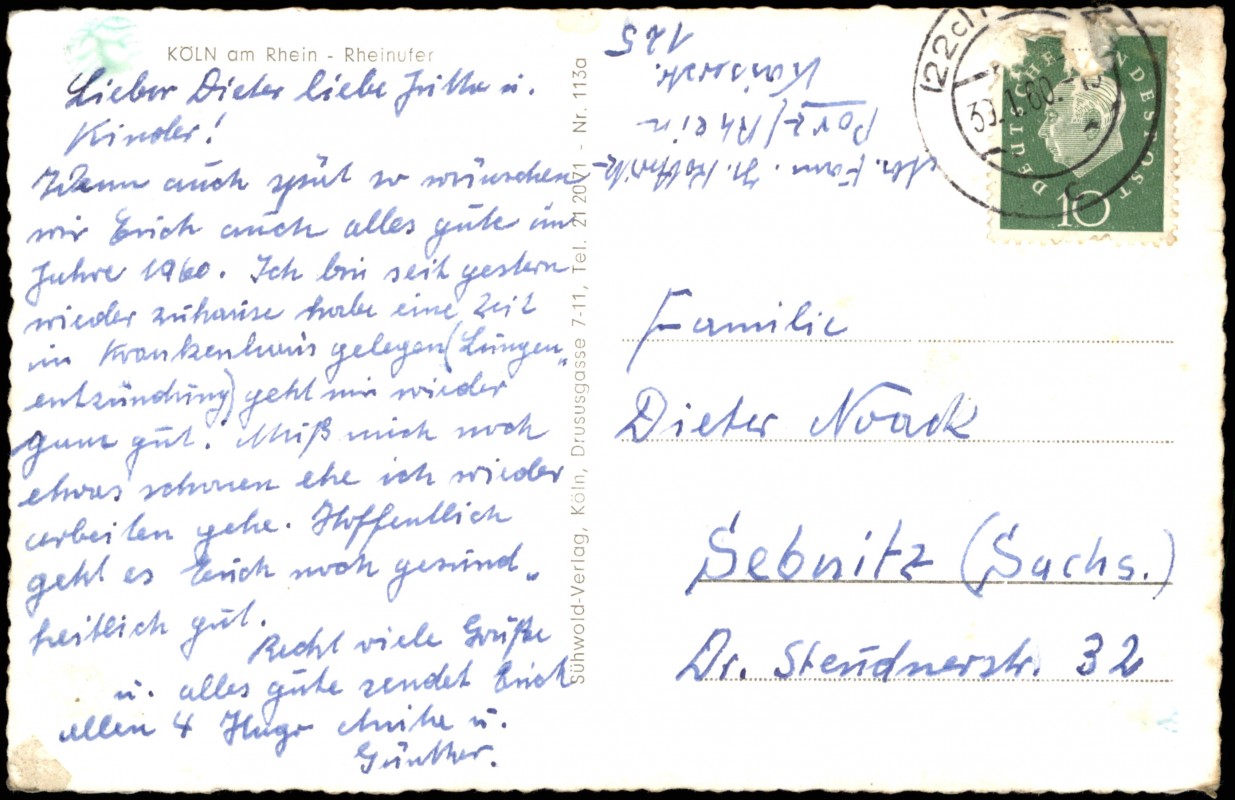 KÖLN am Rhein - Rheinufer
Lieber Dieter liebe Jutta u.
Kinder!
Wenn auch spät so wünschen
wir Euch auch alles gute im
Jahre 1960. Ich bin seit gestern
wieder zuhause habe eine Zeit
im Krankenhaus gelegen (Lungen„
entzündung) geht mir wieder
ganz gut. Muß mich noch
etwas schonen ehe ich wieder
arbeiten gehe. Hoffentlich
geht es Euch noch gesund„
heitlich gut.
Recht viele Grüße
u. alles gute sendet Euch
allen 4 Hugo u.
Günther.
Sühwold-Verlag, Köln, Drususgasse 7-11, Tel. 21 20 71 - Nr. 113a
Abs. Fam. H.
Porz/Rhein
Kaiserstr.
125
(22c)
DEUTSCHE BUNDESPOST
10
Familie
Dieter Noack
Sebnitz (Sachs.)
Dr. Steudnerstr. 32